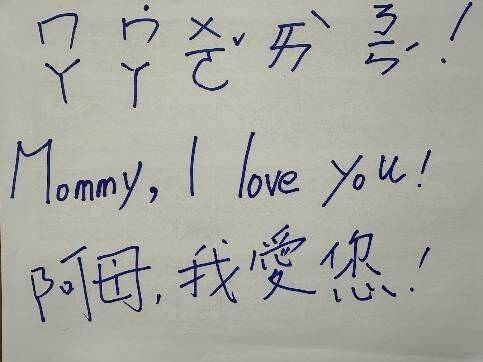 ㄇㄚ ˙ㄇㄚ ㄨㄛˇ ㄞˋ ㄋㄧㄣˊ!
Mommy, I love you!
阿母,我愛您!